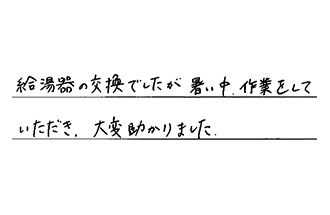 給湯器の交換でしたが暑い中、作業をして
いただき、大変助かりました.